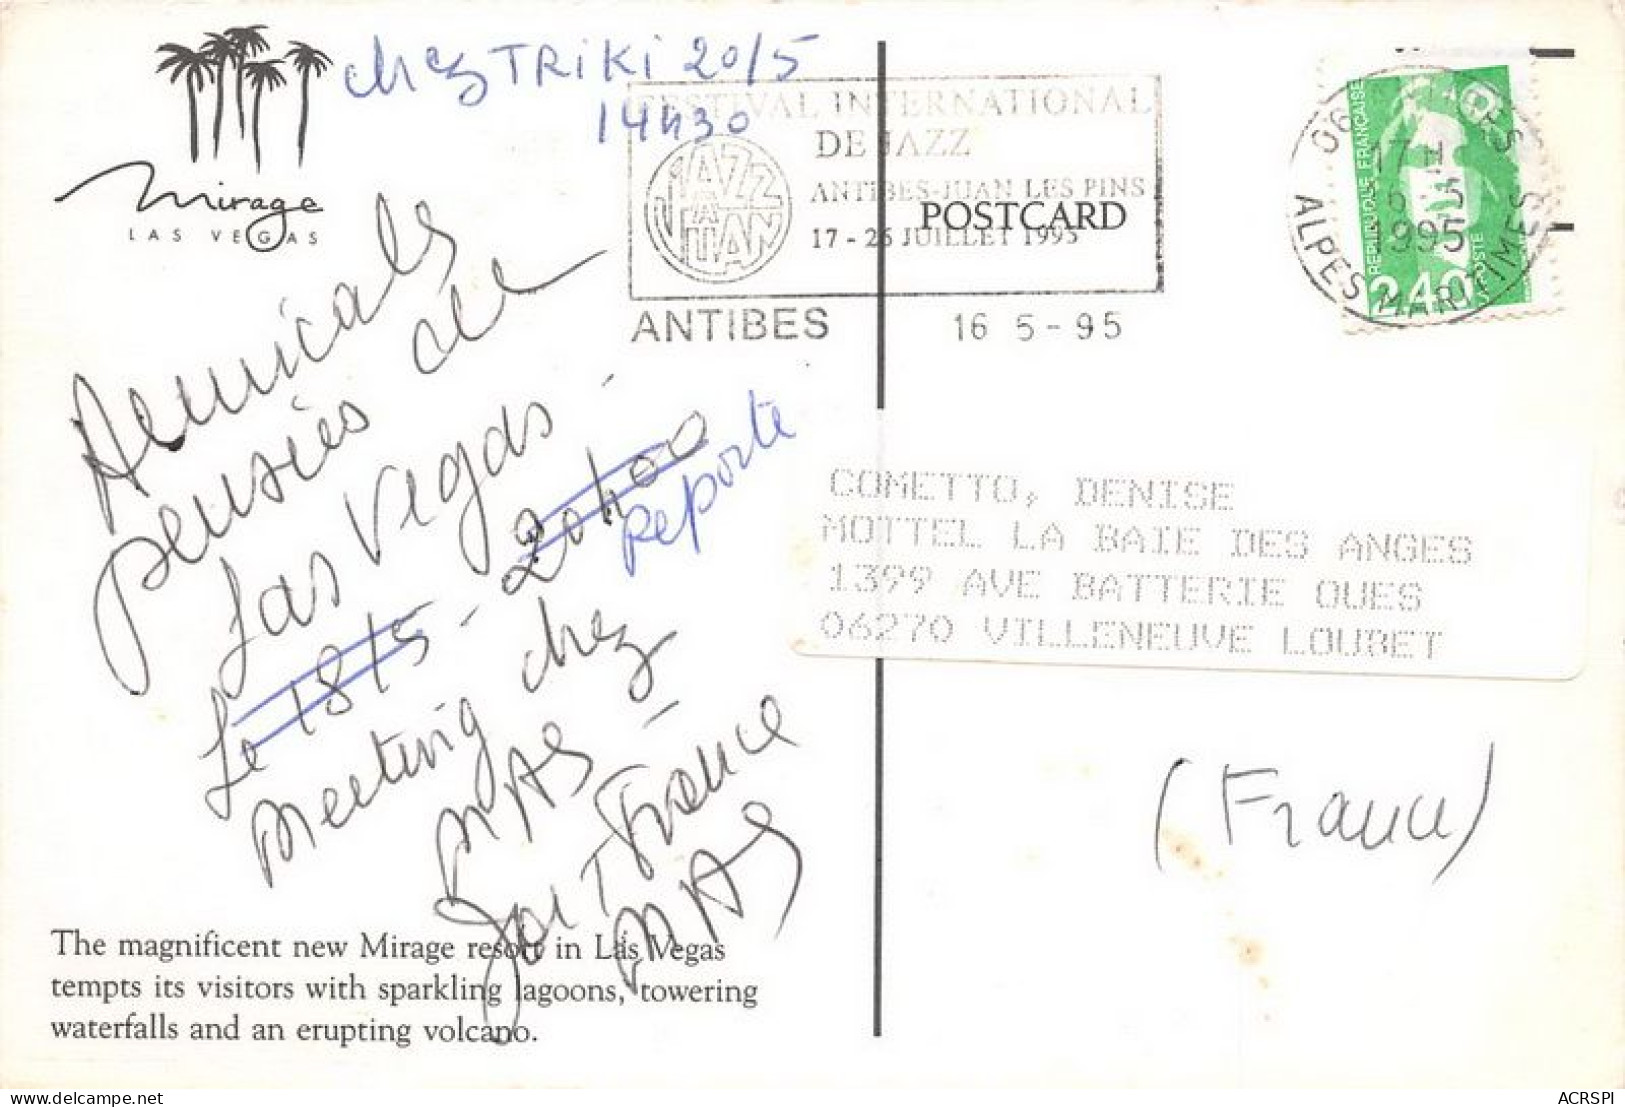 chez TRiKi 20/5
14h30
Mirage
LAS VEGAS
FESTIVAL INTERNATIONAL
DE JAZZ
JAZZ
À
JUAN
ANTIBES-JUAN LES PINS
17 - 26 JUILLET 1995
POSTCARD
ANTIBES 16 5 - 95
REPUBLIQUE FRANCAISE
2,40
LA POSTE
06
17 H
16 5
1995
ALPES MARITIMES
Amicals
pensiées de
Las Vegas -
Le 18/5 - 20h00
Reporté
Meeting chez
MAS -
Joe France
MAS
COMETTO, DENISE
MOTTEL LA BAIE DES ANGES
1399 AVE BATTERIE OUES
06270 VILLENEUVE LOUBET
(France)
The magnificent new Mirage resort in Las Vegas
tempts its visitors with sparkling lagoons, towering
waterfalls and an erupting volcano.
delcampe.net
ACRSPI